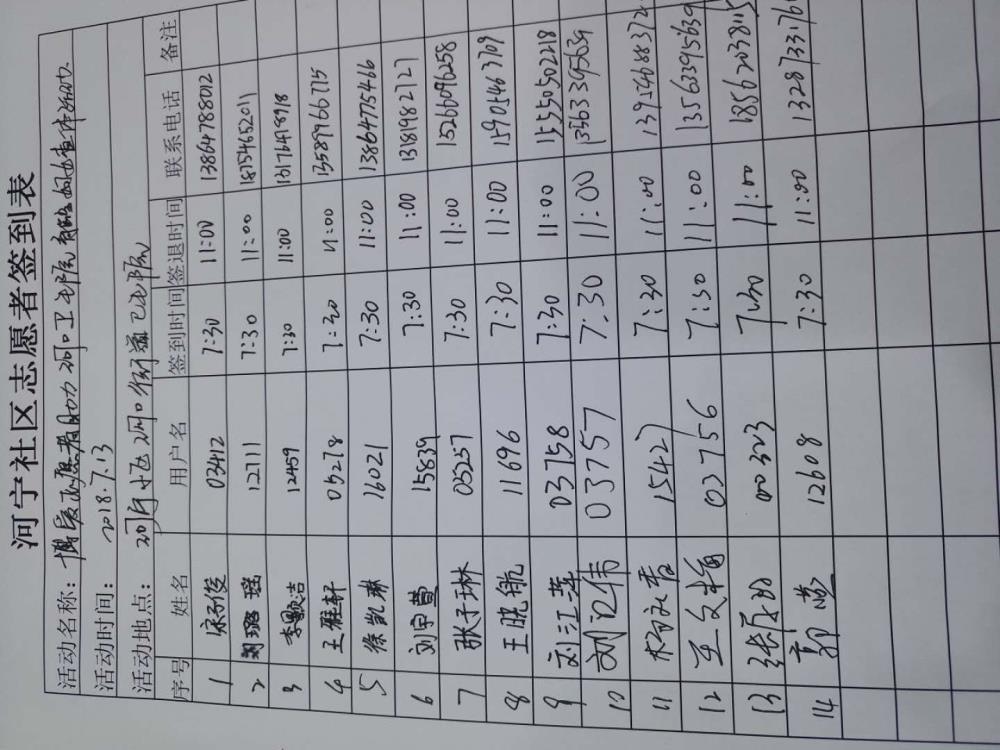 河宁社区志愿者签到表
活动名称：博爱志愿者助力河口卫生院
活动时间： 2018.7.13
活动地点： 河宁社区 河口街道卫生院
序号 姓名 用户名 签到时间 签退时间 联系电话 备注
1 宋子俊 03412 7:30 11:00 13864788012
2 郑璐瑶 12711 7:30 11:00 18754652011
3 李颢洁 12459 7:30 11:00
4 王雅轩 05278 7:30 11:00 13589966775
5 徐凯琳 16021 7:30 11:00 13864775466
6 刘宇萱 15839 7:30 11:00 13181982727
7 张子琳 05257 7:30 11:00 15266096258
8 王晓航 11696 7:30 11:00 15905463709
9 刘江萍 03758 7:30 11:00 15550502218
10 刘记伟 03757 7:30 11:00 13563395639
11 15427 7:30 11:00
12 王文梅 03756 7:30 11:00 13563395639
13 00323 7:30 11:00 18562038115
14 郭燕 12608 7:30 11:00